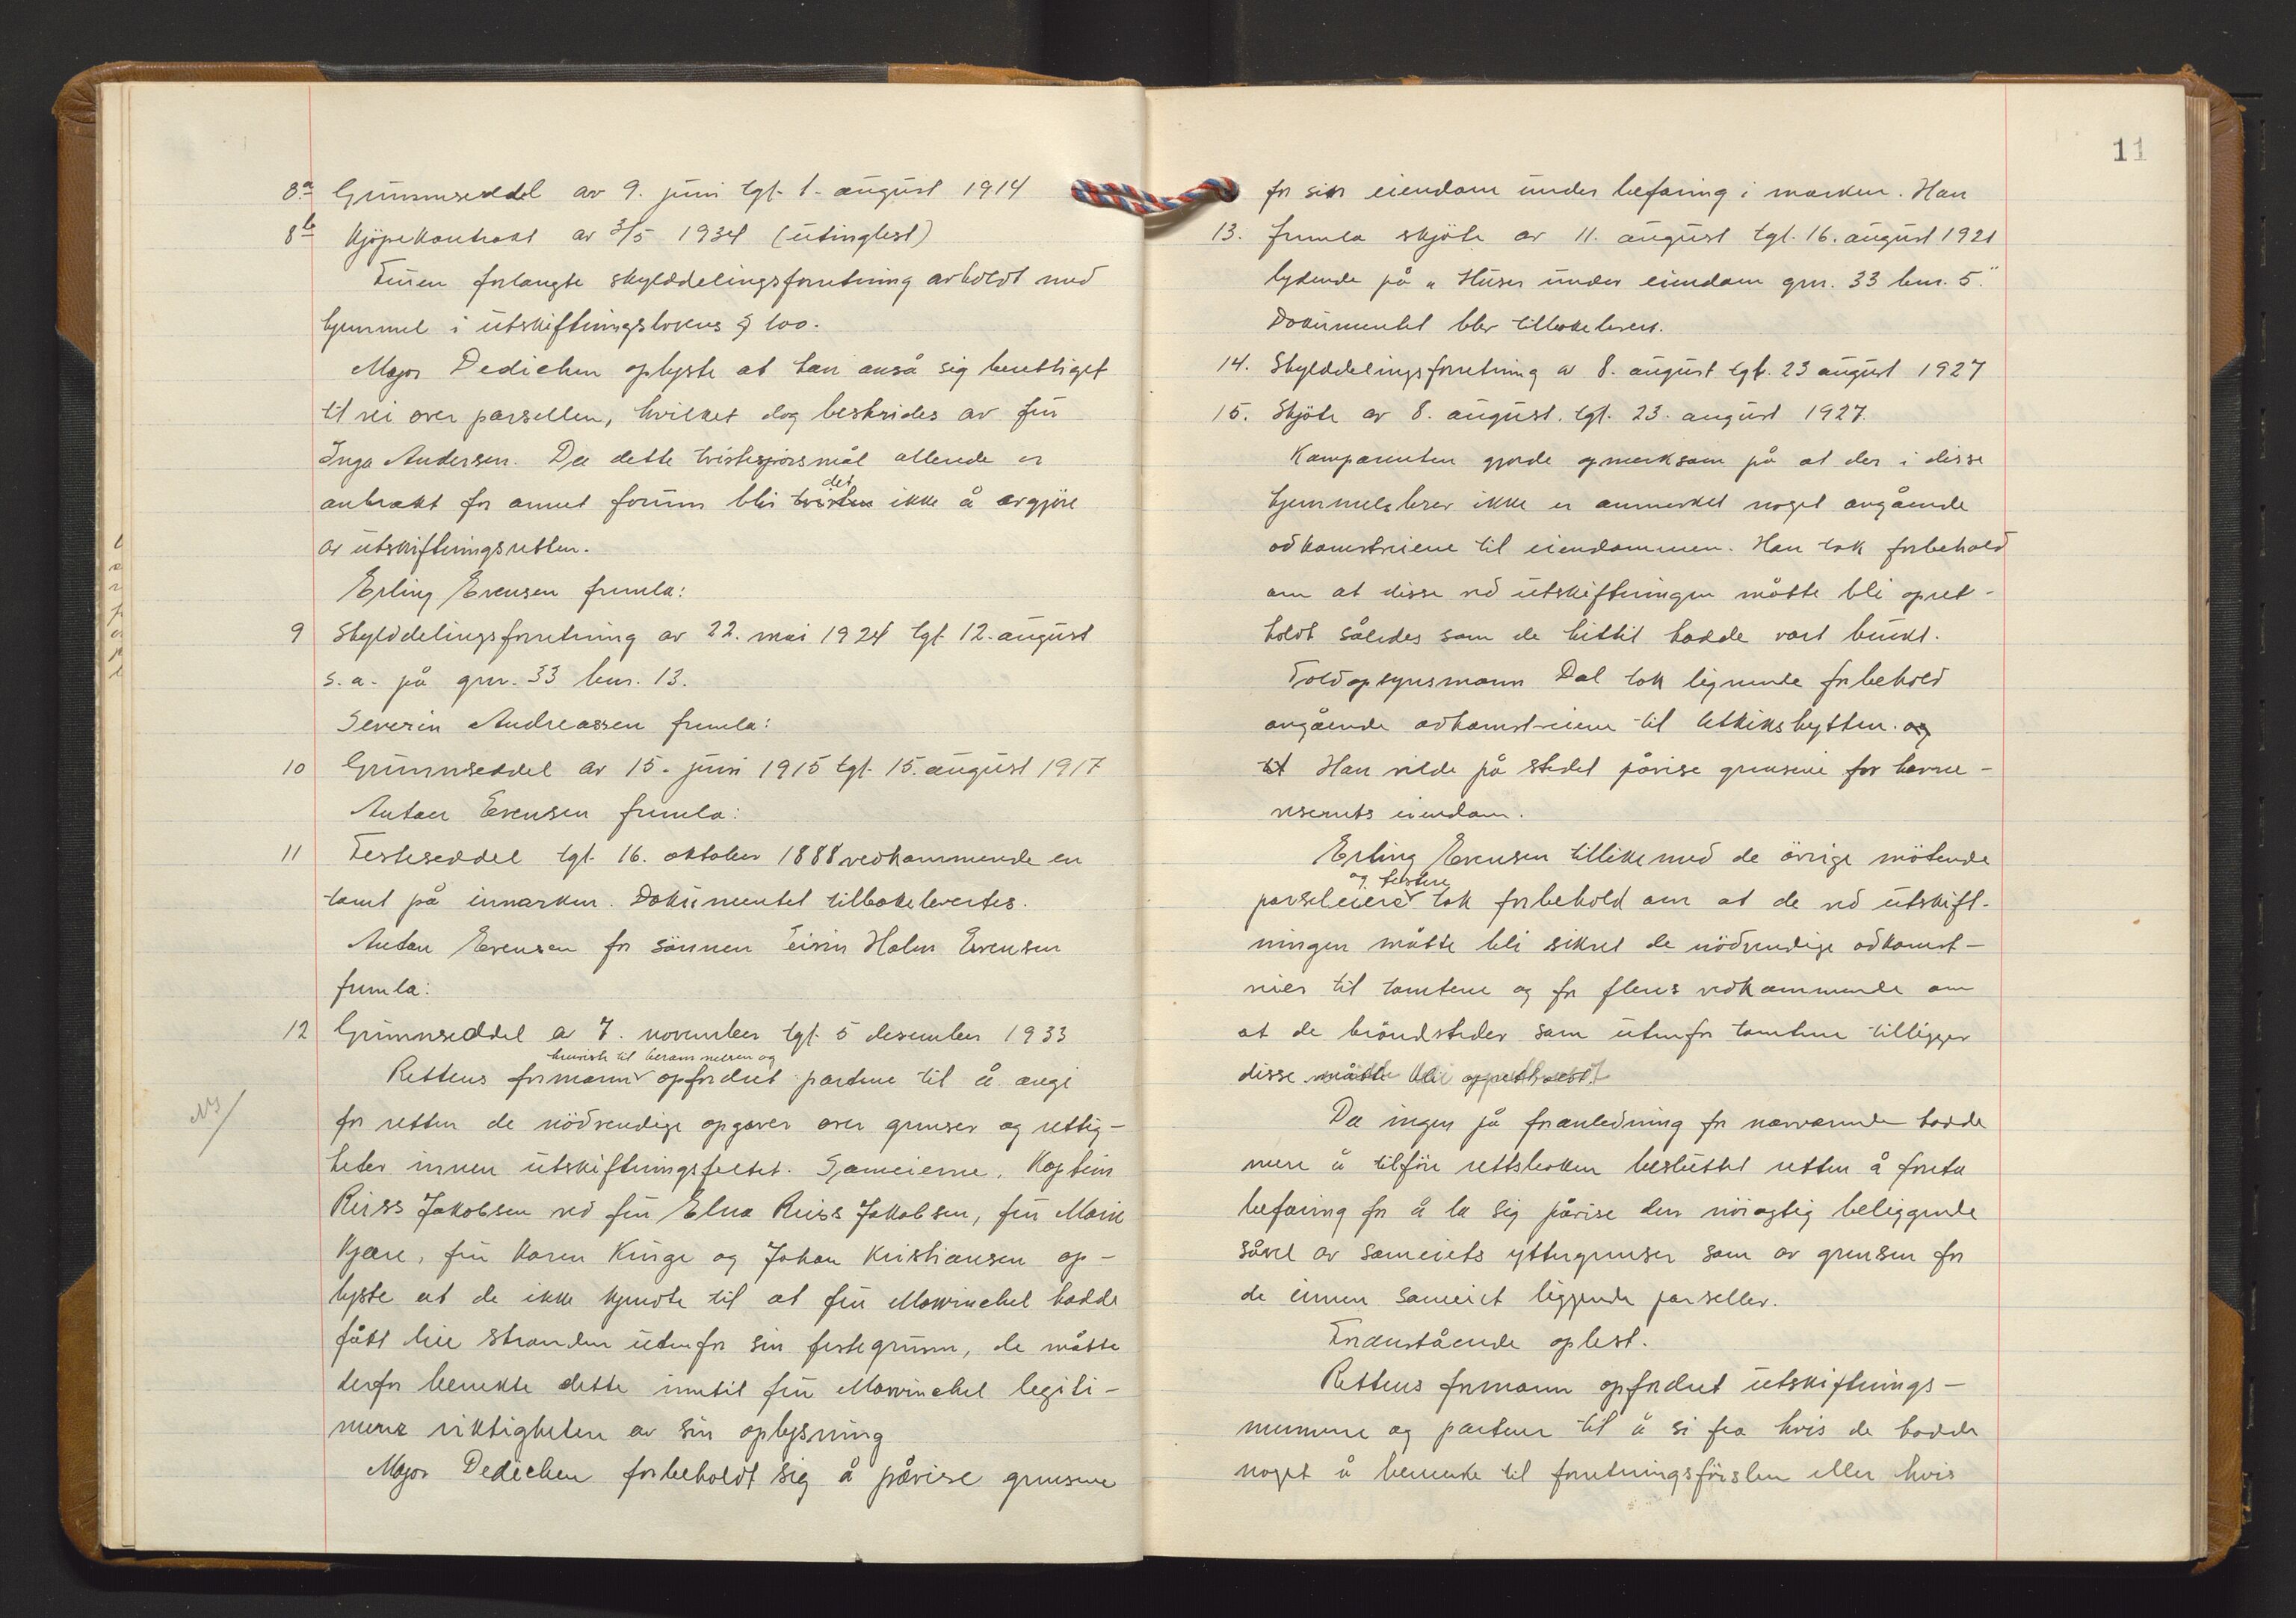 8a Grunnseddel av 9. juni tgl. 1. august 1914
8b Kjöpekontrakt av 3/5 1934 (utinglest)
Fruen forlangte skylddelingsforretning avholdt med
hjemmel i utskiftningslovens § 100.
Major Dedichen oplyste at han anså sig berettiget
til vei over parsellen, hvilket dog bestrides av fru
Inga Andersen. Da dette tvistespörsmål allerede er
anbrakt for annet forum blir tvisten det ikke å avgjöre
av utskiftningsretten.
Erling Evensen fremla:
9 Skylddelingsforretning av 22. mai 1924 tgl. 12. august
s.a. på gnr. 33 bnr. 13.
Severin Andreassen fremla:
10 Grunnseddel av 15. juni 1915 tgl. 15. august 1917
Anton Evensen fremla:
11 Festeseddel tgl. 16. oktober 1888 vedkommende en
tomt på innmarken. Dokumentet tilbakelevertes.
Anton Evensen for sönnen Eivin Holm Evensen
fremla:
12 Grunnseddel av 7. november tgl. 5 desember 1933
henviste til berammelsen og
Rettens formann opfordret partene til å angi
for retten de nödvendige opgaver over grenser og rettig-
heter innen utskiftningsfeltet. Sameierne, Kaptein
Riiss Jakobsen ved fru Elna Riiss Jakobsen, fru Marie
Kjære, fru Karen Kinge og Johan Kristiansen op-
lyste at de ikke kjendte til at fru Mowinckel hadde
fått leie stranden utenfor sin festegrunn, de måtte
derfor benekte dette inntil fru Mowinckel legiti-
merer riktigheten av sin oplysning
Major Dedichen forbeholdt sig å påvise grensene
11
for sin eiendom under befaring i marken. Han
13. fremla skjöte av 11. august tgl. 16. august 1921
lydende på "Huser under eiendom gnr. 33 bnr. 5."
Dokumentet blev tilbakelevert.
14. Skylddelingsforretning av 8. august tgl. 23 august 1927
15. Skjöte av 8. august. tgl. 23. august 1927.
Komparenten gjorde opmerksom på at der i disse
hjemmelsbrev ikke er anmerket noget angående
adkomstveiene til eiendommen. Han tok forbehold
om at disse ved utskiftningen måtte bli opret-
holdt således som de hittil hadde vært brukt.
Toldopsynsmann Dal tok lignende forbehold
angående adkomstveiene til Utkikshytten. og
til Han vilde på stedet påvise grensene for havne-
vesenets eiendom.
Erling Evensen tillikemed de övrige mötende
og festere
parseleiere tok forbehold om at de ved utskift-
ningen måtte bli sikret de nödvendige adkomst-
veier til tomtene og for fleres vedkommende om
at de bröndsteder som utenfor tomtene tilligger
disse måtte bli opretholdt
Da ingen på foranledning for nærværende hadde
mere å tilföre rettsboken besluttet retten å foreta
befaring for å la sig påvise den nöiagtig beliggende
såvel av sameiets yttergrenser som av grensen for
de innen sameiet liggende parseller.
Foranstående oplest.
Rettens formann opfordret utskiftnings-
mennene og partene til å si fra hvis de hadde
noget å bemerke til forretningsförslen eller hvis